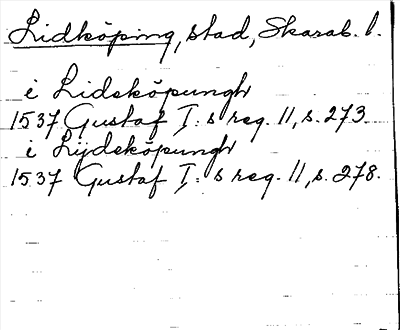 Lidköping, stad, Skarab. l.
i Lidsköpungh
1537 Gustaf I:s reg. 11, s. 273.
i Lijdsköpungh
1537 Gustaf I:s reg. 11, s. 278.